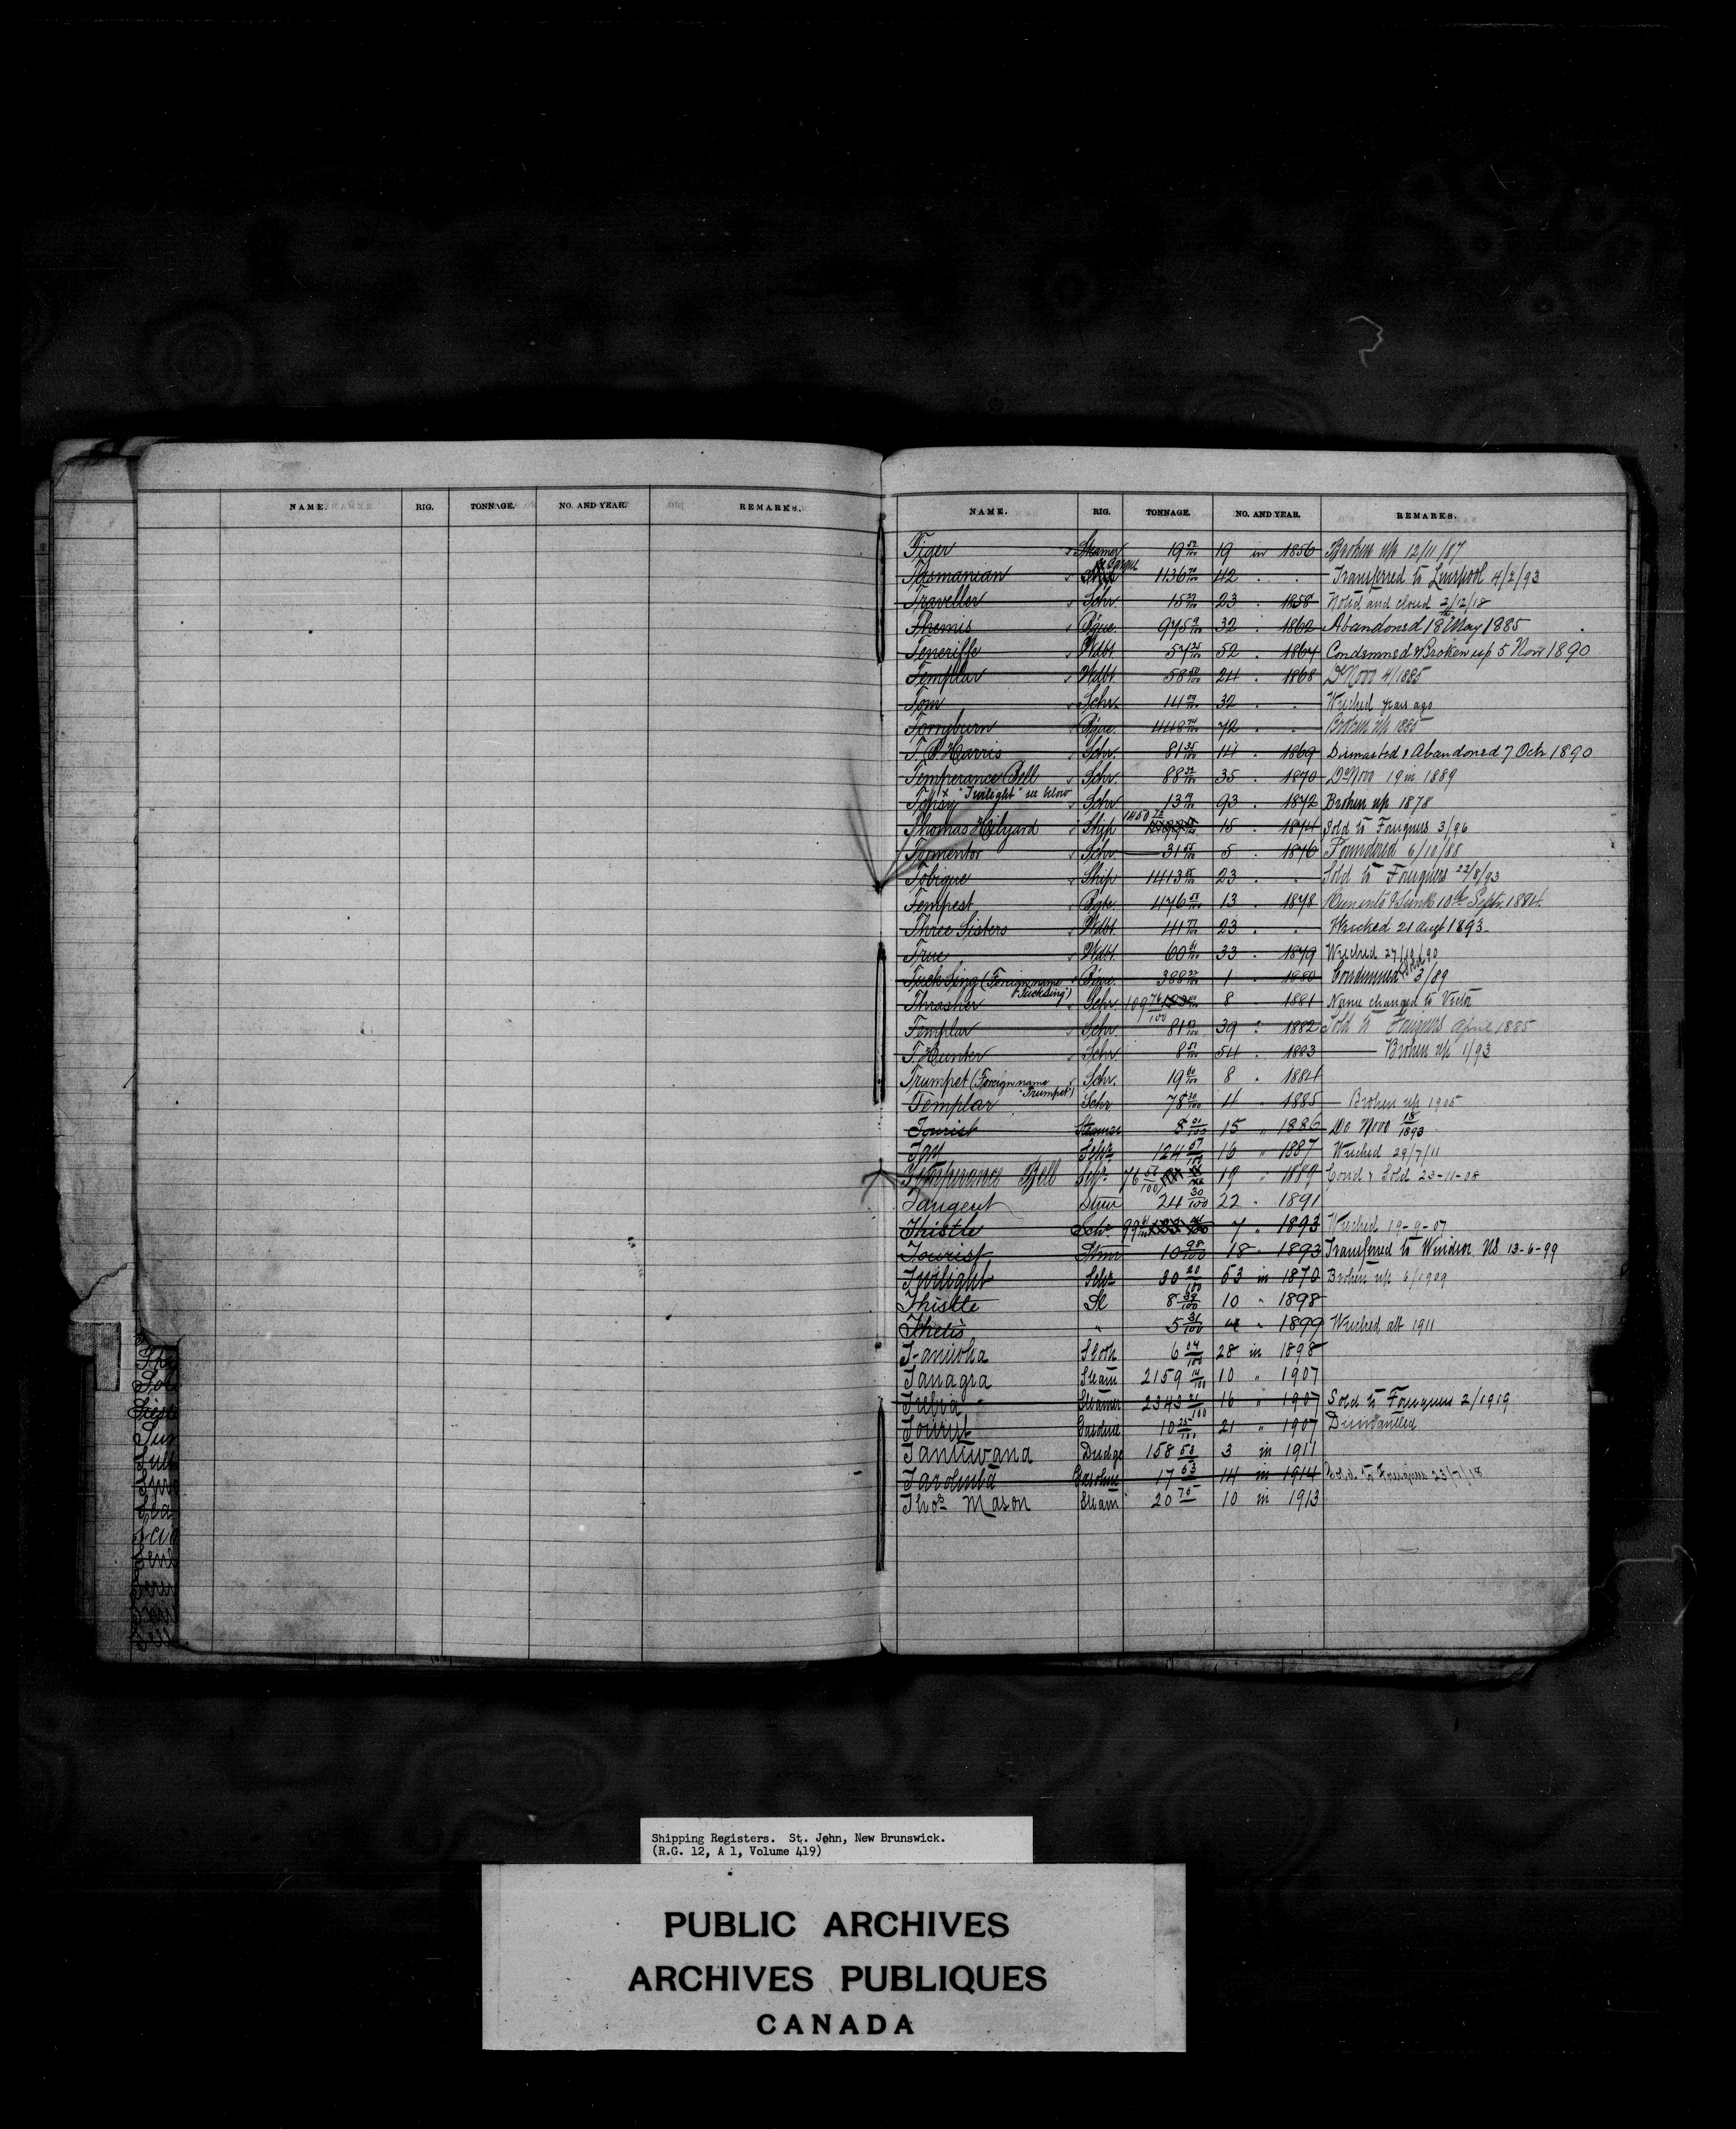 NAME. RIG. TONNAGE. NO. AND YEAR. REMARKS.
NAME. RIG. TONNAGE. NO. AND YEAR. REMARKS.
Tiger Steamer 19 52/100 19 in 1856 Broken up 12/11/87
Barque
Tasmanian Ship 1136 42 " " Transferred to Liverpool 4/2/93
Traveller Schr. 15 23 " 1858 Noted and closed 2/12/18
Themis Bque. 975 32 " 1862 Abandoned 18 May 1885
Teneriffe Wdbt 57 52 " 1864 Condemned & Broken up 5 Novr 1890
Templar Wdbt 58 24 " 1868 De Novo 4/1885
Tom Schr. 14 32 " " Wrecked years ago
Tornyburn Bque. 448 72 " " Broken up 1885
T. B. Harris Schr. 81 14 " 1869 Dismasted & Abandoned 7 Octr 1890
Temperance Bell Schr. 88 35 " 1870 De Novo 19 in 1889
x "Twilight" see below
Topsy Schr 13 93 " 1872 Broken up 1878
Thomas Hilyard Ship 1450 15 " 1874 Sold to Foreigners 3/96
Tormentor Schr. 31 5 " 1876 Foundered 6/10/88
Tobique Ship 1413 23 " " Sold to Foreigners 22/8/93
Tempest Bgte. 476 13 " 1878 Run into & Sunk 10th Septr. 1884.
Three Sisters Wdbt 41 23 " " Wrecked 21 Augt 1893
True Wdbt. 60 33 " 1879 Wrecked 27/10/90
Tuck Sing (Foreign name Bque. 388 1 " 1880 Condemned & Sold 3/89
"Tucksing")
Thrasher Schr. 109 76/100 8 " 1881 Name changed to Victor
Templar Schr. 81 39 " 1882 Sold to Foreigners April 1885
T. Hunter Schr 8 54 " 1883 Broken up 1/93
Trumpet (Foreign name Schr. 19 60/100 8 " 1884
"Trumpet")
Templar Schr 78 4 " 1885 Broken up 1905
Tourist Steamer 8 01/100 15 " 1886 De Novo 18/1893
Tay Schr 124 57/100 16 " 1887 Wrecked 29/7/11
Temperance Bell Schr 76 19 " 1889 Cond & Sold 23-11-08
Tangent Stmr 24 30/100 22 " 1891
Thistle Schr. 99 7 " 1893 Wrecked 19-9-07
Tourist Stmr 10 98/100 18 " 1893 Transferred to Windsor NS 13-6-99
Twilight Schr 30 20/100 53 in 1870 Broken up 6/1909
Thistle Sl 8 39/100 10 " 1898
Thetis " 5 31/100 4 " 1899 Wrecked alt 1911
Tanisha Sloop 6 04/100 28 in 1898
Tanagra Steam 2159 14/100 10 " 1907
Trebia Steamer 2343 21/100 16 " 1907 Sold to Foreigners 2/1919
Tourist Gasoline 10 25/100 21 " 1907 Dismantled
Tantiwana Dredge 158 50 3 in 1911
Tarolinta Gasoline 17 53 14 in 1914 Sold to Foreigners 23/7/18
Thos. Mason Steam 20 75 10 in 1913
Shipping Registers. St. John, New Brunswick.
(R.G. 12, A 1, Volume 419)
PUBLIC ARCHIVES
ARCHIVES PUBLIQUES
CANADA